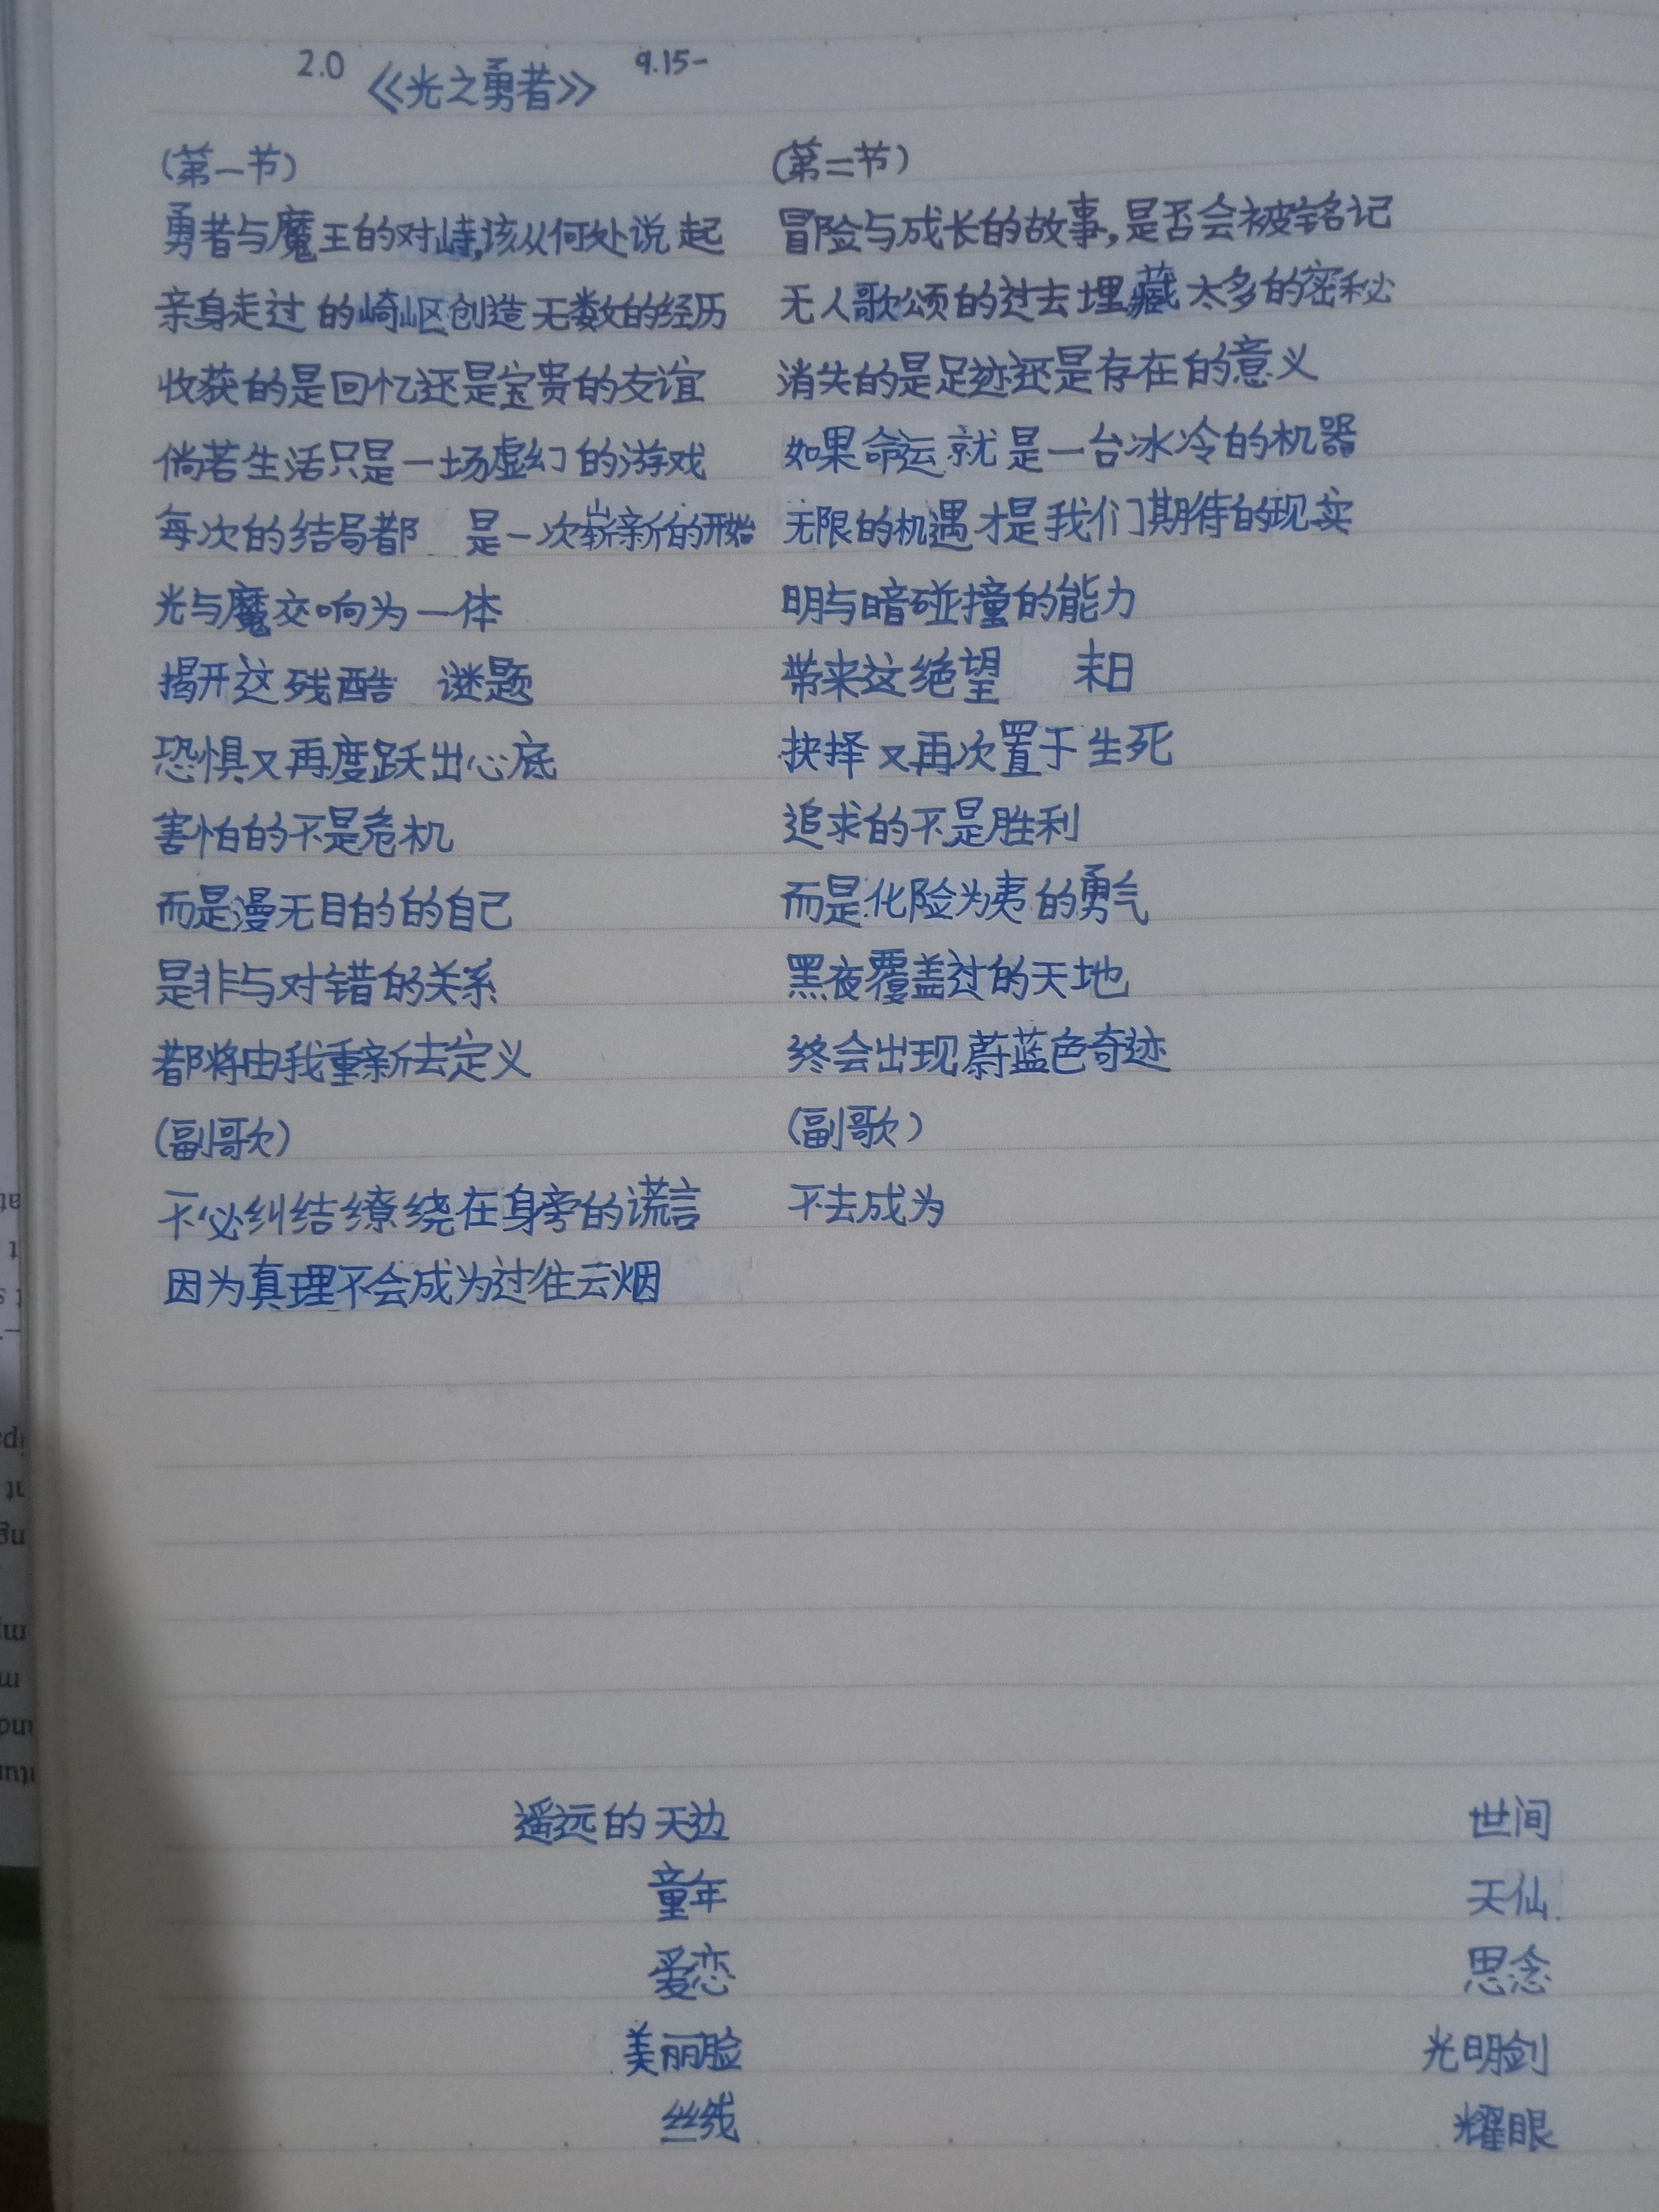 2.0 《光之勇者》 9.15-
(第一节)
勇者与魔王的对峙,该从何处说起
亲身走过的崎岖创造无数的经历
收获的是回忆还是宝贵的友谊
倘若生活只是一场虚幻的游戏
每次的结局都 是一次崭新的开始
光与魔交响为一体
揭开这残酷 谜题
恐惧又再度跃出心底
害怕的不是危机
而是漫无目的的自己
是非与对错的关系
都将由我重新去定义
(副歌)
不必纠结缭绕在身旁的谎言
因为真理不会成为过往云烟
遥远的天边
童年
爱恋
美丽脸
丝线
(第二节)
冒险与成长的故事,是否会被铭记
无人歌颂的过去埋藏太多的密秘
消失的是足迹还是存在的意义
如果命运就是一台冰冷的机器
无限的机遇才是我们期待的现实
明与暗碰撞的能力
带来这绝望 末日
抉择又再次置于生死
追求的不是胜利
而是化险为夷的勇气
黑夜覆盖过的天地
终会出现蔚蓝色奇迹
(副歌)
不去成为
世间
天仙
思念
光明剑
耀眼